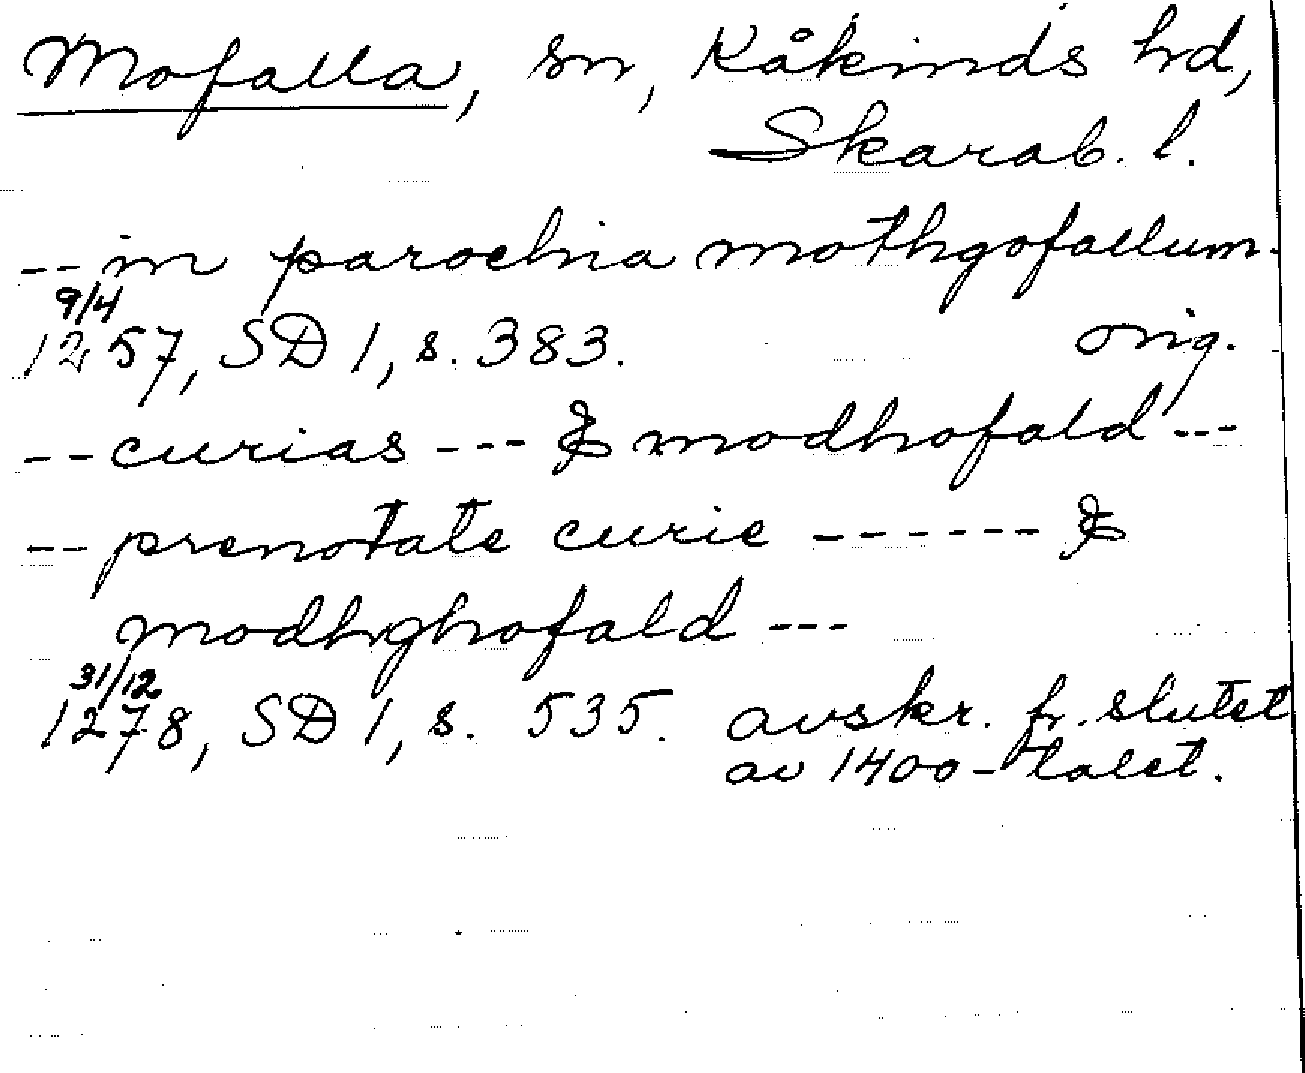 Mofalla, sn, Kåkinds hd,
Skarab. l.
-- in parochia mothgofallum.
9/4
1257, SD 1, s. 383. orig.
-- curias --- & modhofald ---
-- prenotate curie ------ &
modhghofald ---
31/12
1278, SD 1, s. 535. avskr. fr. slutet
av 1400-talet.